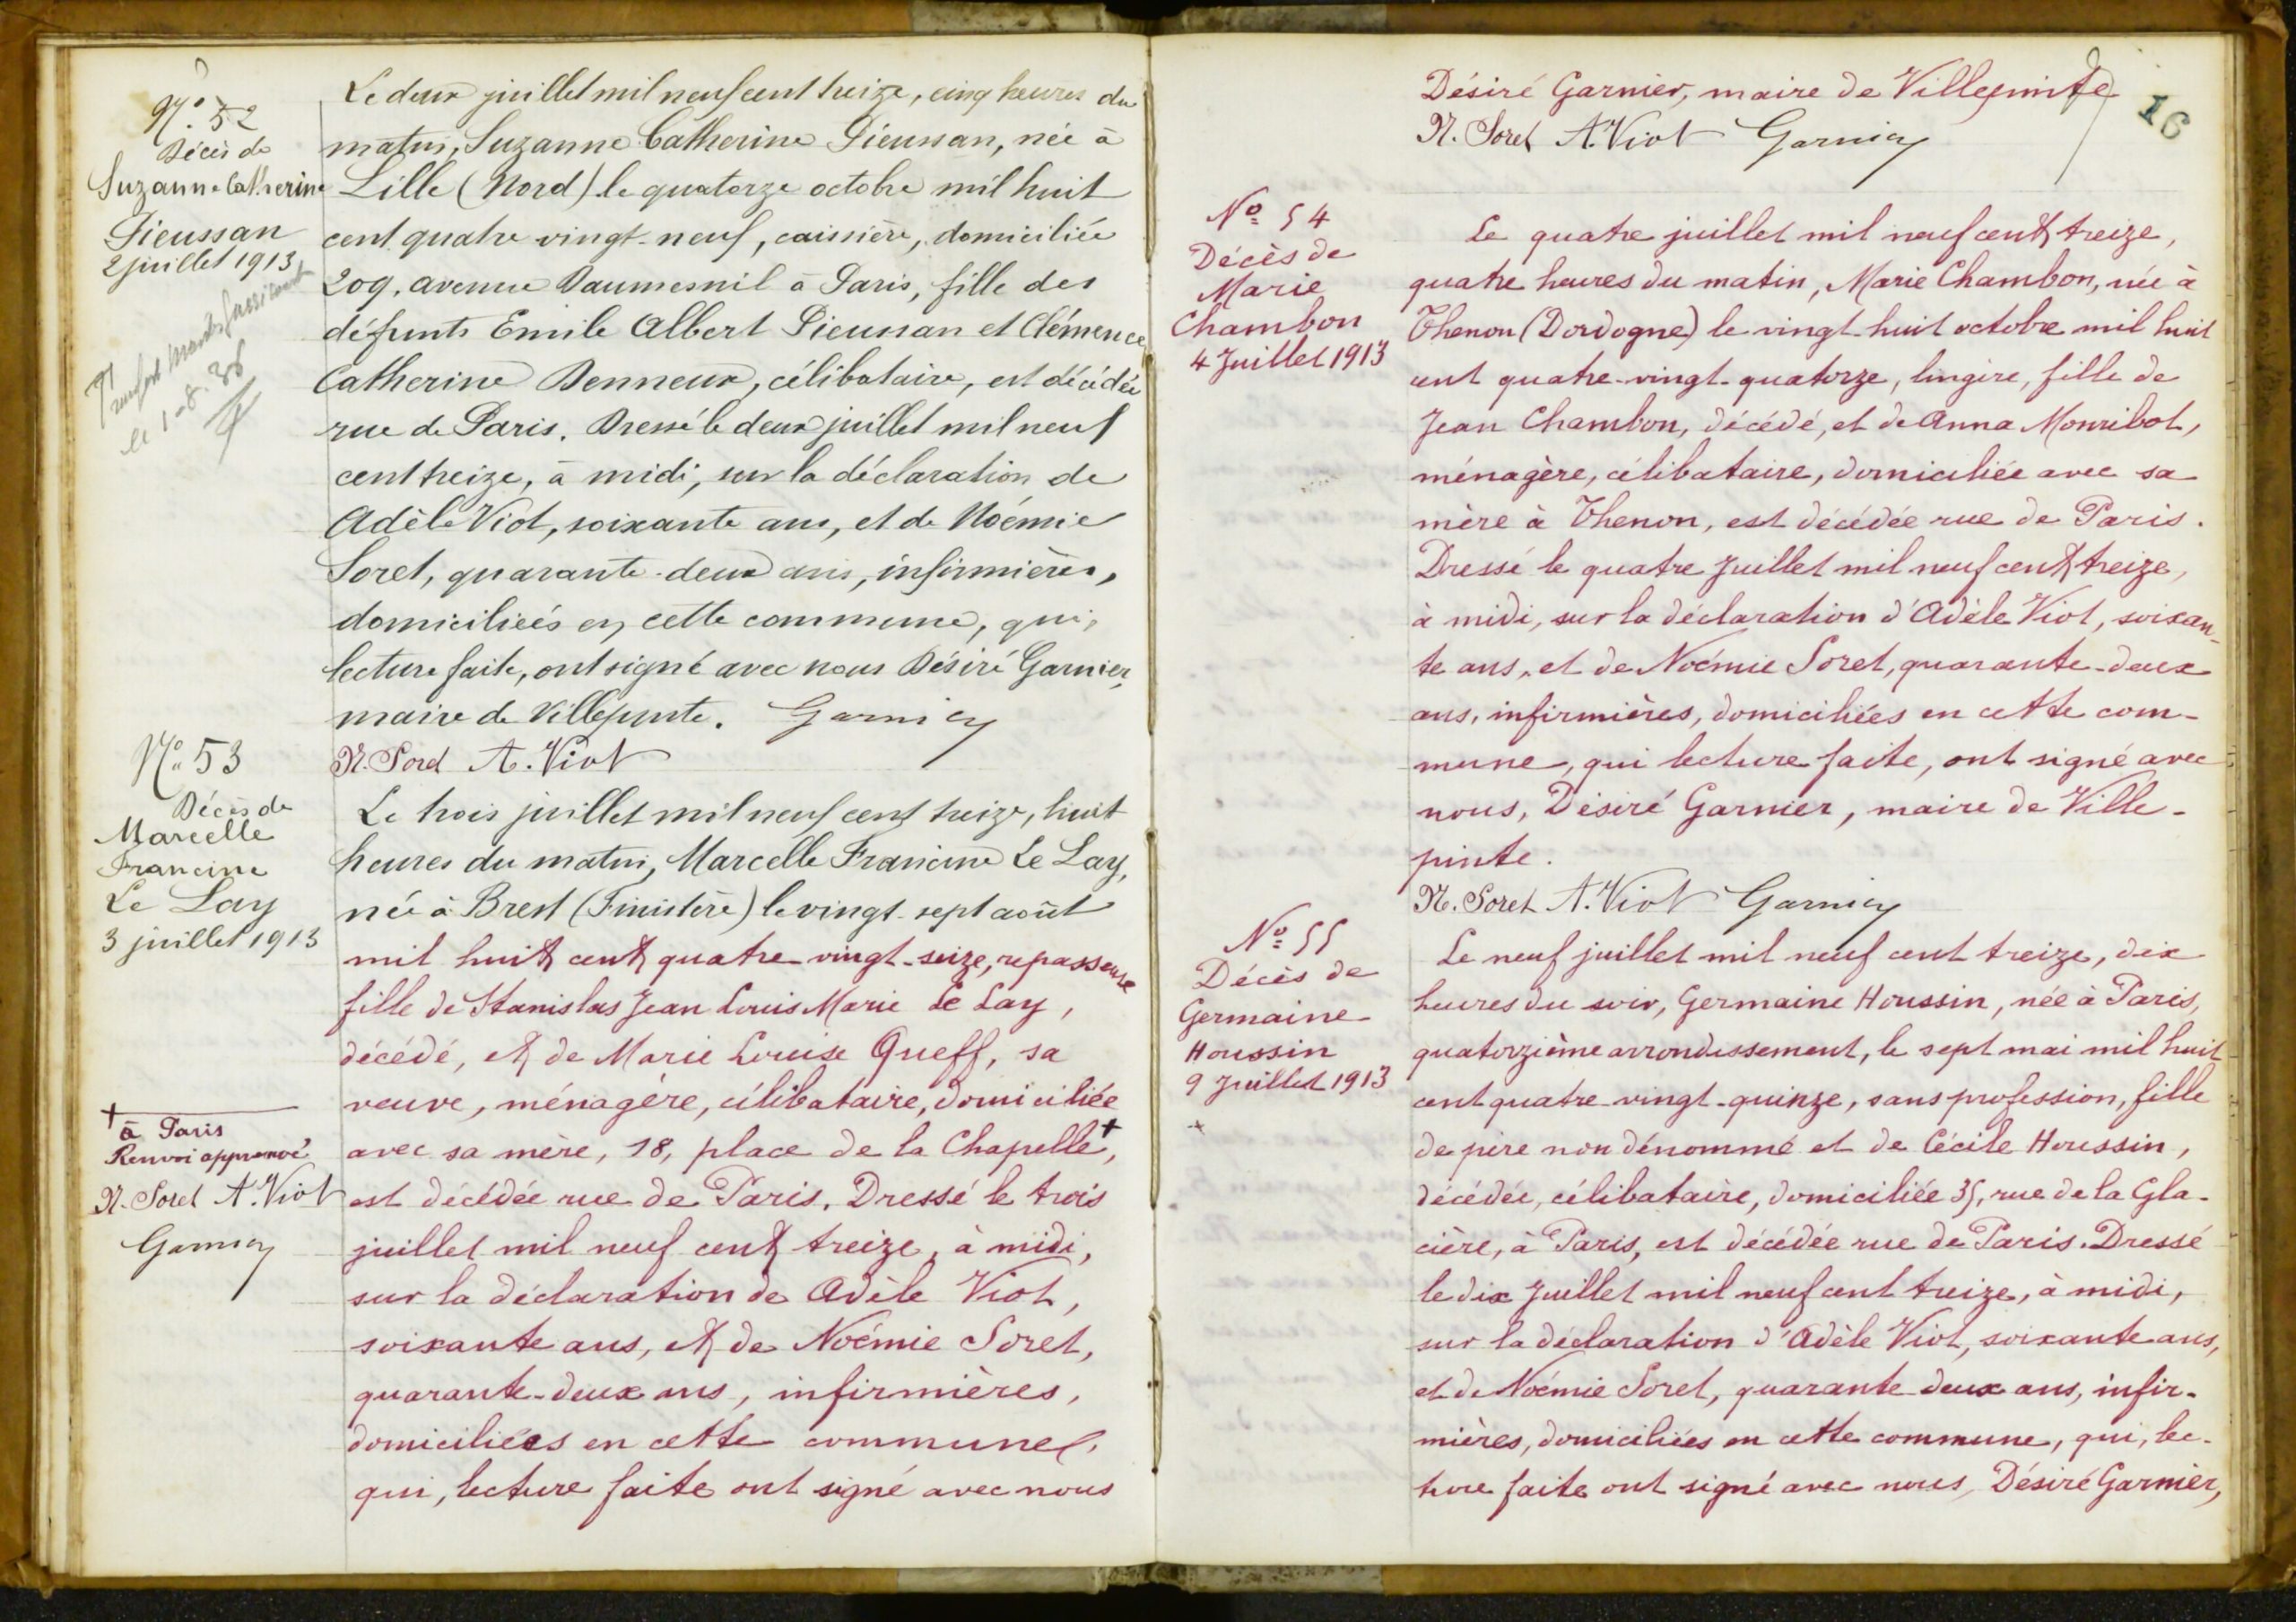 N° 52
Décès de
Suzanne Catherine
Pieussan
2 juillet 1913
le 1-8-38
Le deux juillet mil neuf cent treize, cinq heures du
matin, Suzanne Catherine Pieussan, née à
Lille (Nord) le quatorze octobre mil huit
cent quatre-vingt-neuf, caissière, domiciliée
209, avenue Daumesnil à Paris, fille des
défunts Emile Albert Pieussan et Clémence
Catherine Denneux, célibataire, est décédée
rue de Paris. Dressé le deux juillet mil neuf
cent treize, à midi, sur la déclaration de
Adèle Viot, soixante ans, et de Noémie
Soret, quarante-deux ans, infirmières,
domiciliées en cette commune, qui,
lecture faite, ont signé avec nous Désiré Garnier,
maire de Villepinte. Garnier
N. Soret A. Viot
N° 53
Décès de
Marcelle
Francine
Le Lay
3 juillet 1913
Le trois juillet mil neuf cent treize, huit
heures du matin, Marcelle Francine Le Lay,
née à Brest (Finistère) le vingt-sept août
mil huit cent quatre-vingt-seize, repasseuse
fille de Stanislas Jean Louis Marie Le Lay,
décédé, et de Marie Louise Queff, sa
veuve, ménagère, célibataire, domiciliée
avec sa mère, 18, place de la Chapelle +,
est décédée rue de Paris. Dressé le trois
juillet mil neuf cent treize, à midi,
sur la déclaration de Adèle Viot,
soixante ans, et de Noémie Soret,
quarante-deux ans, infirmières,
domiciliées en cette commune,
qui, lecture faite ont signé avec nous
+ à Paris
Renvoi approuvé
N. Soret A. Viot
Garnier
Désiré Garnier, maire de Villepinte
N. Soret A. Viot Garnier
16
N° 54
Décès de
Marie
Chambon
4 Juillet 1913
Le quatre juillet mil neuf cent treize,
quatre heures du matin, Marie Chambon, née à
Thenon (Dordogne) le vingt-huit octobre mil huit
cent quatre-vingt-quatorze, lingère, fille de
Jean Chambon, décédé, et de Anna Mouribot,
ménagère, célibataire, domiciliée avec sa
mère à Thenon, est décédée rue de Paris.
Dressé le quatre Juillet mil neuf cent treize,
à midi, sur la déclaration d'Adèle Viot, soixan-
te ans, et de Noémie Soret, quarante-deux
ans, infirmières, domiciliées en cette com-
mune, qui lecture faite, ont signé avec
nous, Désiré Garnier, maire de Ville-
pinte.
N. Soret A. Viot Garnier
N° 55
Décès de
Germaine
Houssin
9 Juillet 1913
+
Le neuf juillet mil neuf cent treize, dix
heures du soir, Germaine Houssin, née à Paris,
quatorzième arrondissement, le sept mai mil huit
cent quatre-vingt-quinze, sans profession, fille
de père non dénommé et de Cécile Houssin,
décédée, célibataire, domiciliée 35, rue de la Gla-
cière, à Paris, est décédée rue de Paris. Dressé
le dix Juillet mil neuf cent treize, à midi,
sur la déclaration d'Adèle Viot, soixante ans,
et de Noémie Soret, quarante deux ans, infir-
mières, domiciliées en cette commune, qui, lec-
ture faite ont signé avec nous, Désiré Garnier,